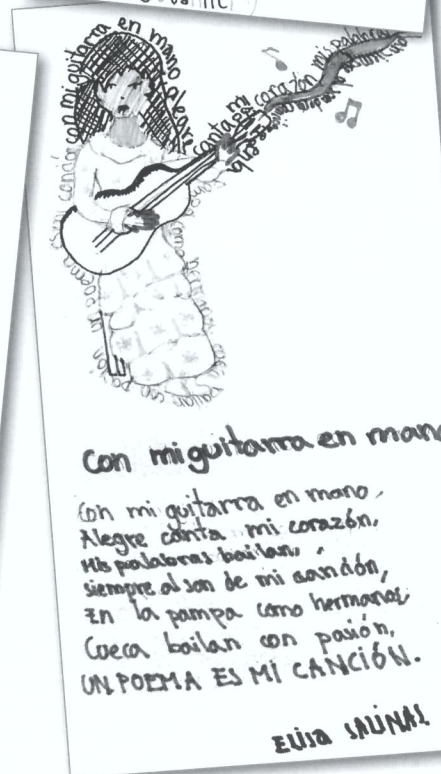 con mi guitarra en mano alegre
canta mi corazón mis palabras
con mi guitarra en mano
Con mi guitarra en mano,
Alegre canta mi corazón,
Mis palabras bailan,
siempre al son de mi canción,
En la pampa como hermanos
Cueca bailan con pasión,
UN POEMA ES MI CANCIÓN.
ELISA SALINAS